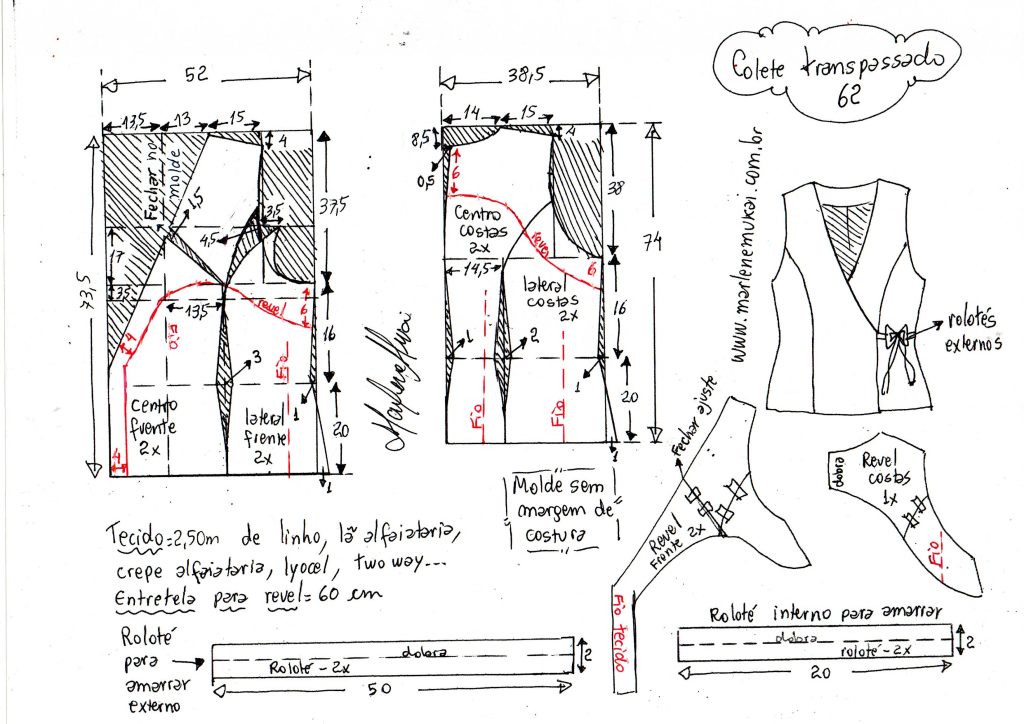 Colete transpassado
62
www.marlenemukai.com.br
52
13,5
13
15
4
Fechar no
molde
1,5
3,5
4,5
37,5
17
3,5
73,5
13,5
revel
6
4
Fio
16
3
Fio
1
centro
frente
2x
lateral
frente
2x
20
4
1
38,5
14
15
8,5
4
0,5
6
38
Centro
costas
2x
revel
74
14,5
6
lateral
costas
2x
16
1
2
1
Fio
Fio
20
1
Marlene Mukai
rolotés
externos
Molde sem
margem de
costura
Fechar ajuste
Revel
Frente 2x
Fio tecido
dobra
Revel
costas
1x
Fio
Tecido=2,50m de linho, lã alfaiataria,
crepe alfaiataria, lyocel, two way...
Entretela para revel=60 cm
Roloté
para
amarrar
externo
dobra
Roloté - 2x
2
50
Roloté interno para amarrar
dobra
roloté - 2x
2
20